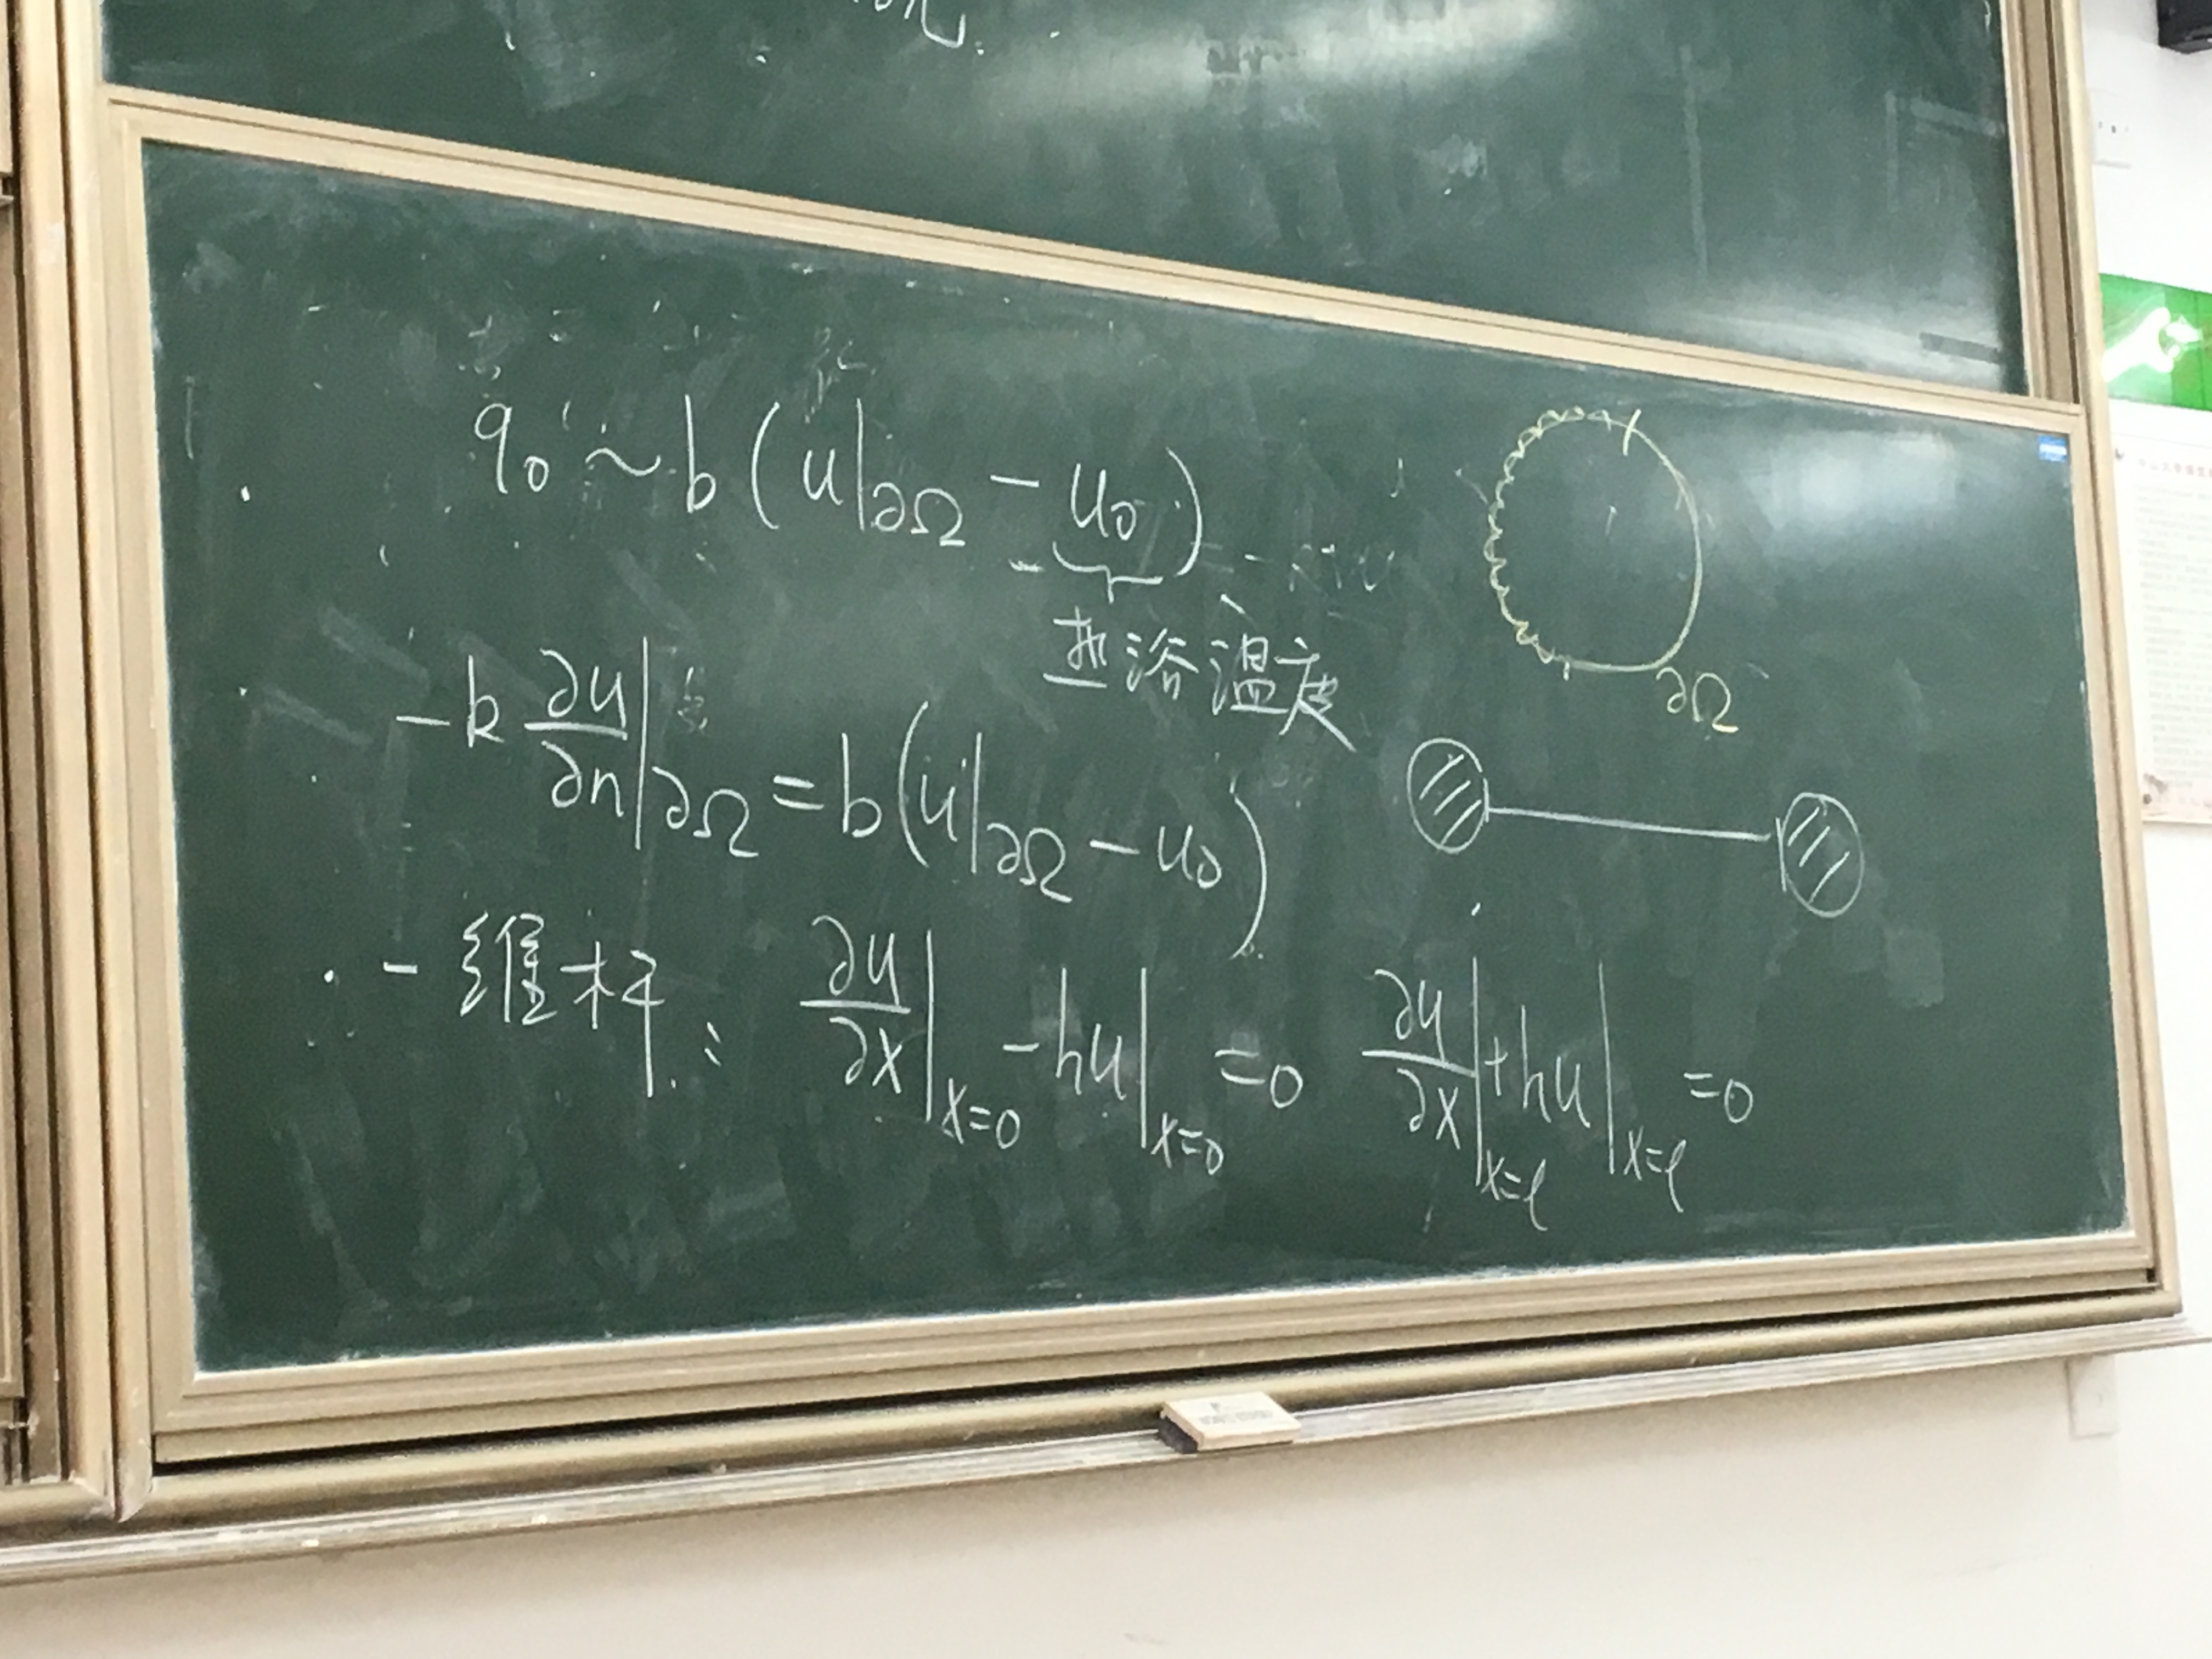 q₀ ~ b(u|∂Ω - u₀)
热浴温度
∂Ω
-k ∂u/∂n|∂Ω = b(u|∂Ω - u₀)
· 一维杆: ∂u/∂x|x=0 - hu|x=0 = 0  ∂u/∂x|x=ℓ + hu|x=ℓ = 0